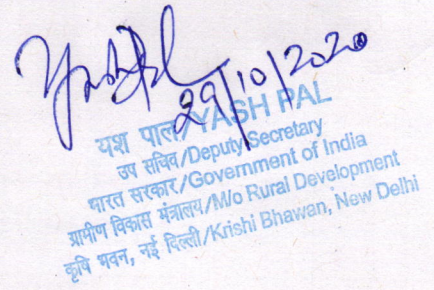 Yash Pal
29/10/2020
यश पाल/YASH PAL
उप सचिव/Deputy Secretary
भारत सरकार/Government of India
ग्रामीण विकास मंत्रालय/M/o Rural Development
कृषि भवन, नई दिल्ली/Krishi Bhawan, New Delhi